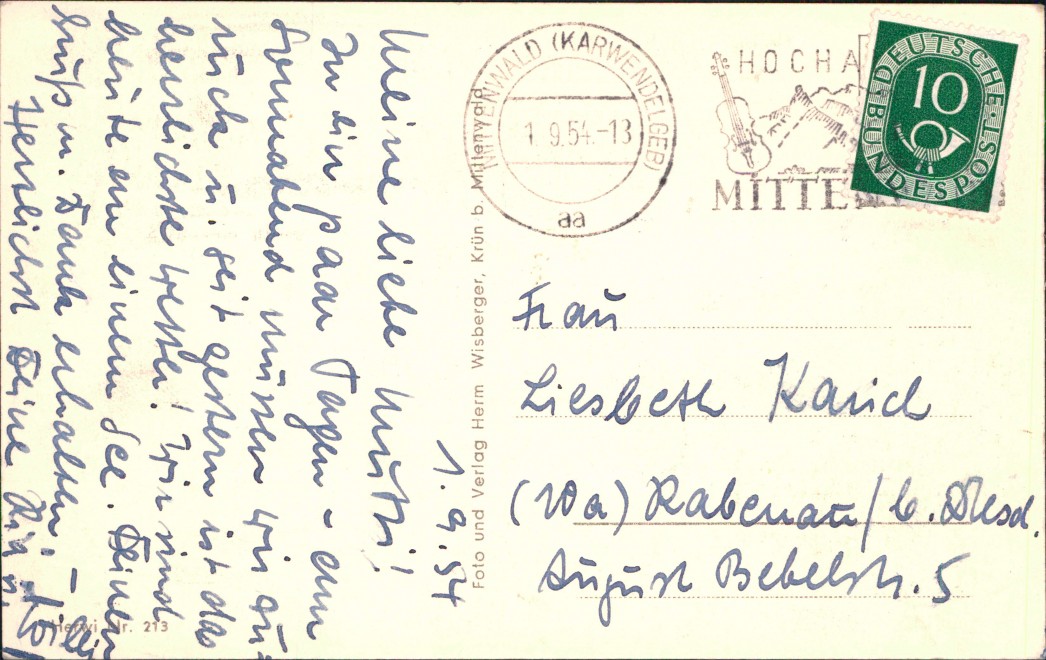 1.9.54
Meine liebe Mutti!
In ein paar Tagen – am
Sonnabend müssen wir zu-
rück u. seit gestern ist das
herrlichste Wetter! Wir sind
heute an einem See. Deinen
Gruß m. Dank erhalten! –
Herzlichst Deine
Foto und Verlag Herm Wisberger, Krün b. Mittenwald
Herwi Nr. 213
MITTENWALD (KARWENDELGEB)
1.9.54-13
aa
HOCHA
MITTE
DEUTSCHE
BUNDESPOST
10
Frau
Liesbeth Karich
(10a) Rabenau/b. Dresd.
August Bebelstr. 5